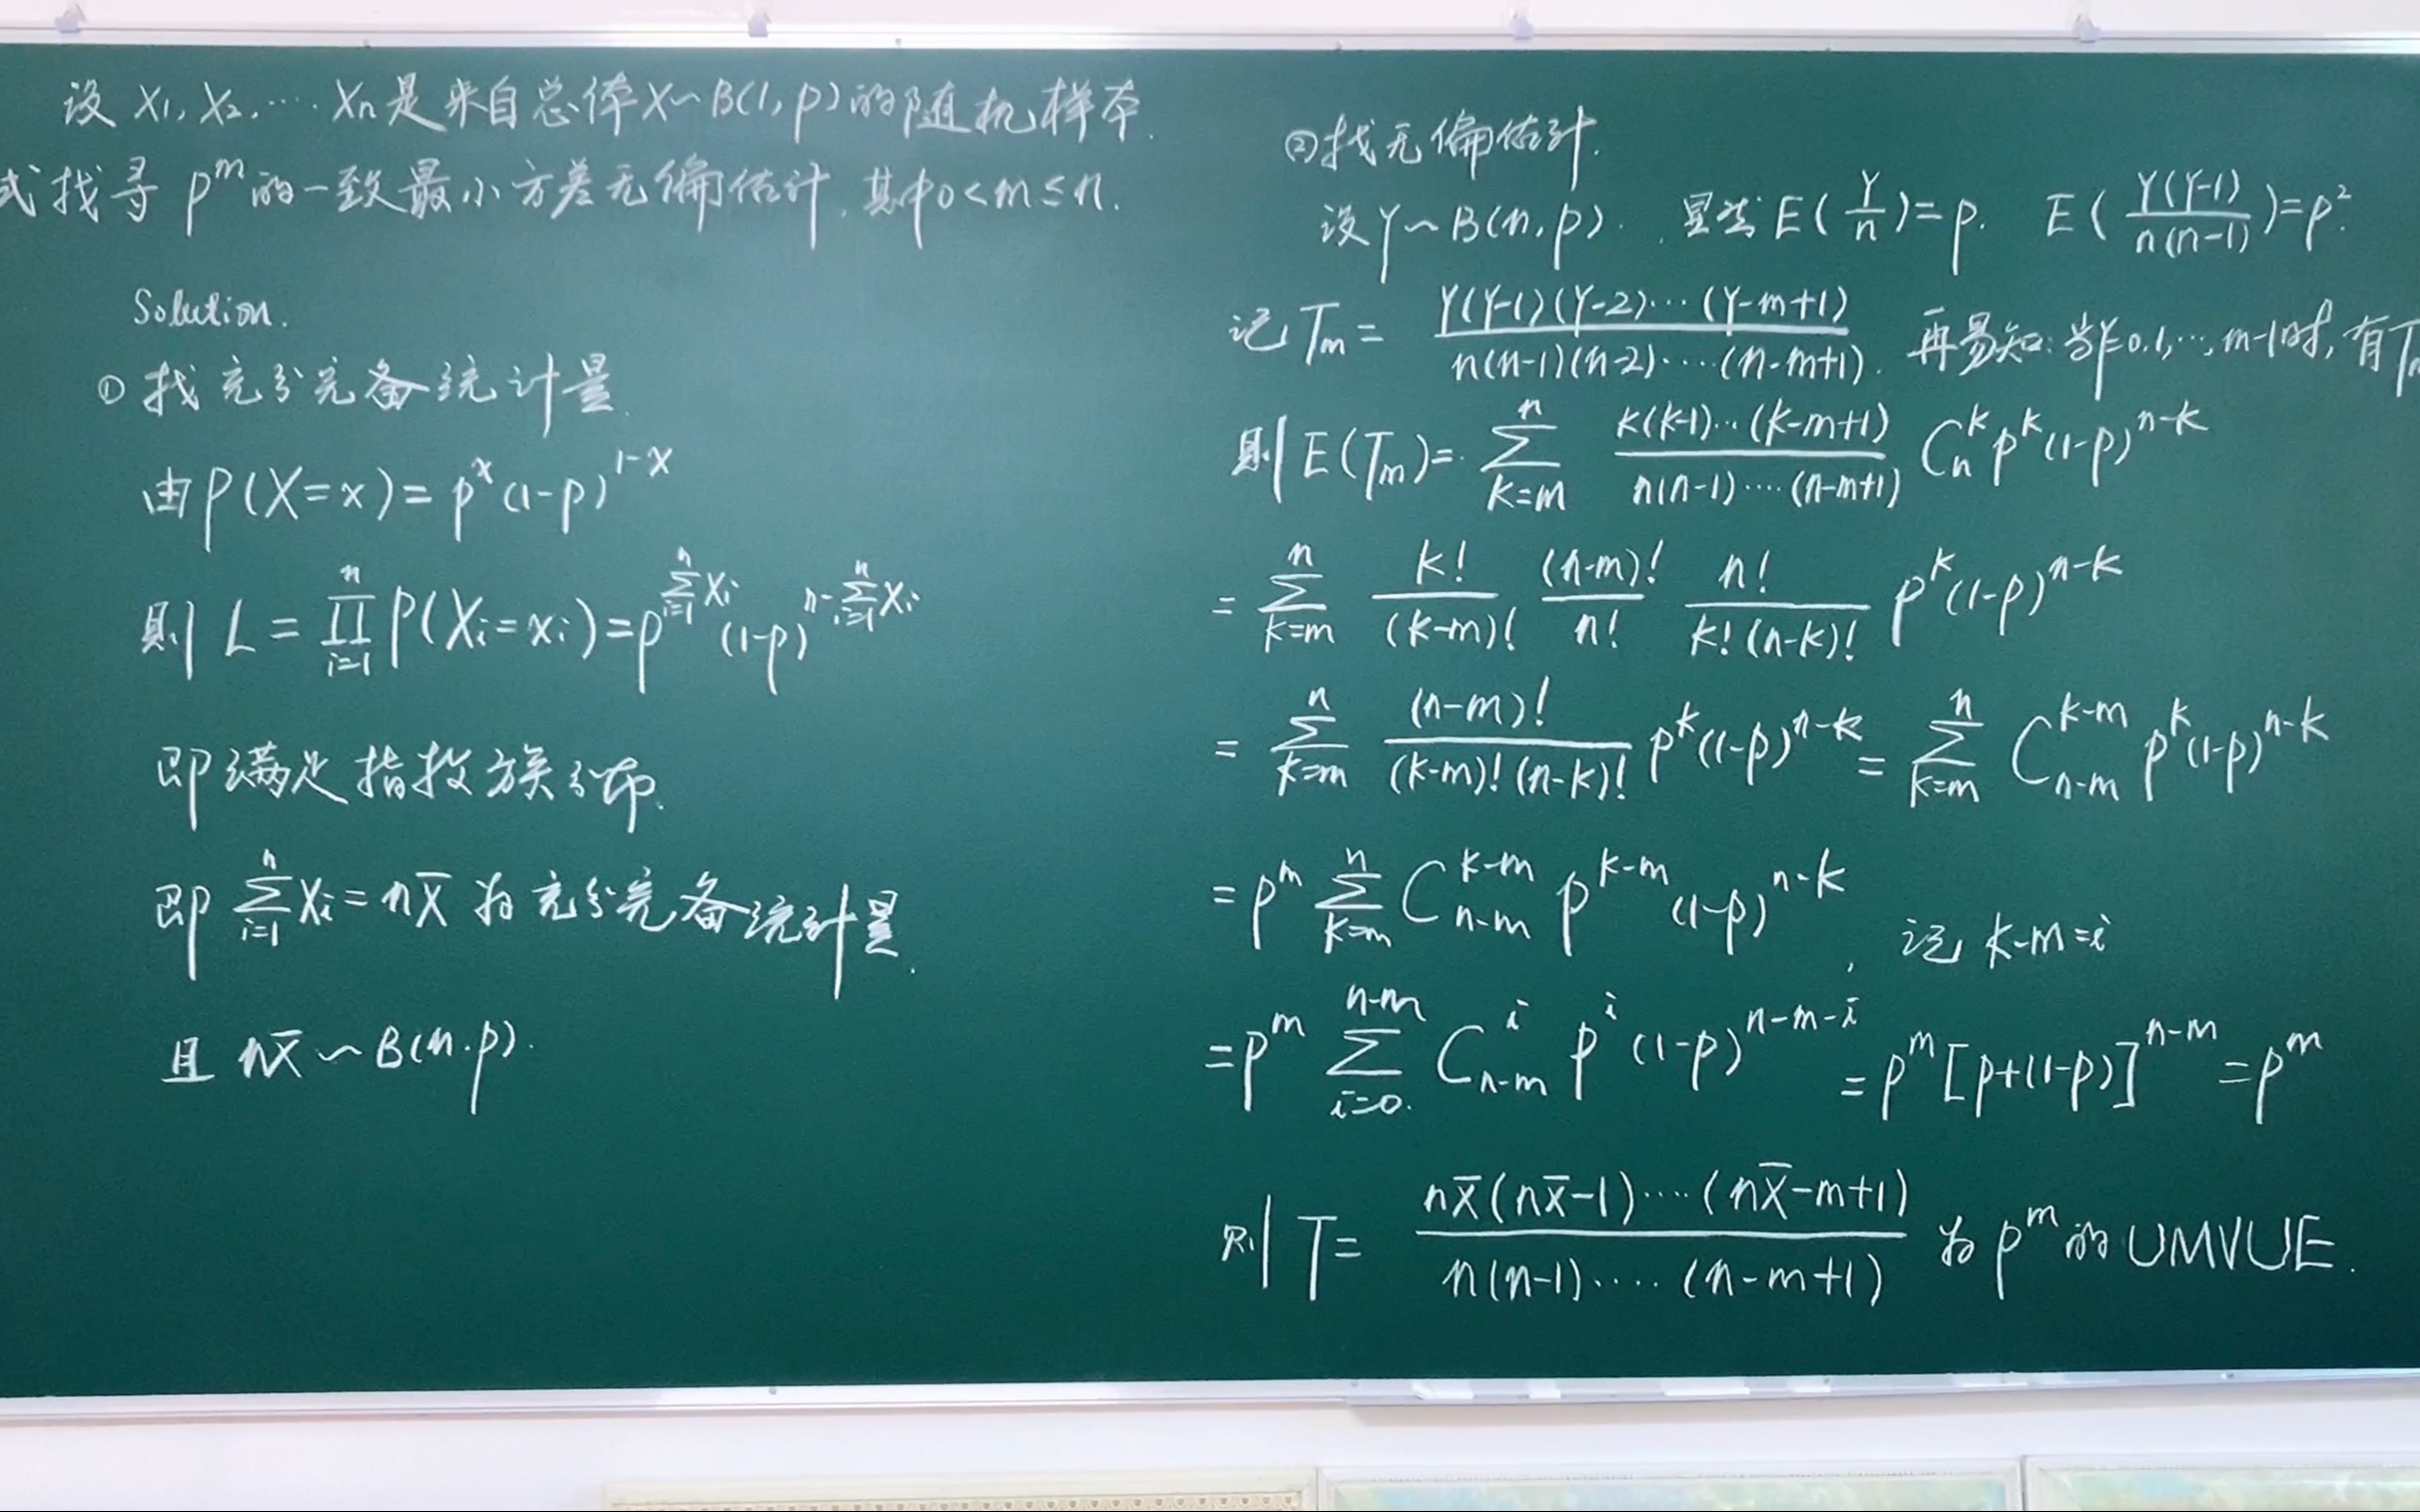 设 X₁, X₂, ···· Xₙ 是来自总体 X~B(1, p) 的随机样本.
式找寻 p^m 的一致最小方差无偏估计. 其中 0<m≤n.
Solution.
① 找充分完备统计量.
由 P(X=x) = p^x (1-p)^{1-x}
则 L = ∏_{i=1}^{n} P(X_i=x_i) = p^{∑_{i=1}^{n} X_i} (1-p)^{n-∑_{i=1}^{n} X_i}
即满足指数族分布.
即 ∑_{i=1}^{n} X_i = nX̄ 为充分完备统计量.
且 nX̄ ~ B(n.p).
② 找无偏估计.
设 Y~B(n, p). 显然 E(Y/n)=p. E(Y(Y-1)/n(n-1))=p².
记 T_m = Y(Y-1)(Y-2)···(Y-m+1)/n(n-1)(n-2)····(n-m+1). 再易知: 当Y=0,1,···,m-1时, 有
则 E(T_m) = ∑_{k=m}^{n} k(k-1)···(k-m+1)/n(n-1)····(n-m+1) C_n^k p^k (1-p)^{n-k}
= ∑_{k=m}^{n} k!/(k-m)! (n-m)!/n! n!/k!(n-k)! p^k (1-p)^{n-k}
= ∑_{k=m}^{n} (n-m)!/(k-m)!(n-k)! p^k (1-p)^{n-k} = ∑_{k=m}^{n} C_{n-m}^{k-m} p^k (1-p)^{n-k}
= p^m ∑_{k=m}^{n} C_{n-m}^{k-m} p^{k-m} (1-p)^{n-k}, 记 k-m=i
= p^m ∑_{i=0}^{n-m} C_{n-m}^{i} p^i (1-p)^{n-m-i} = p^m [p+(1-p)]^{n-m} = p^m
则 T = nX̄(nX̄-1)····(nX̄-m+1)/n(n-1)·····(n-m+1) 为 p^m 的 UMVUE.